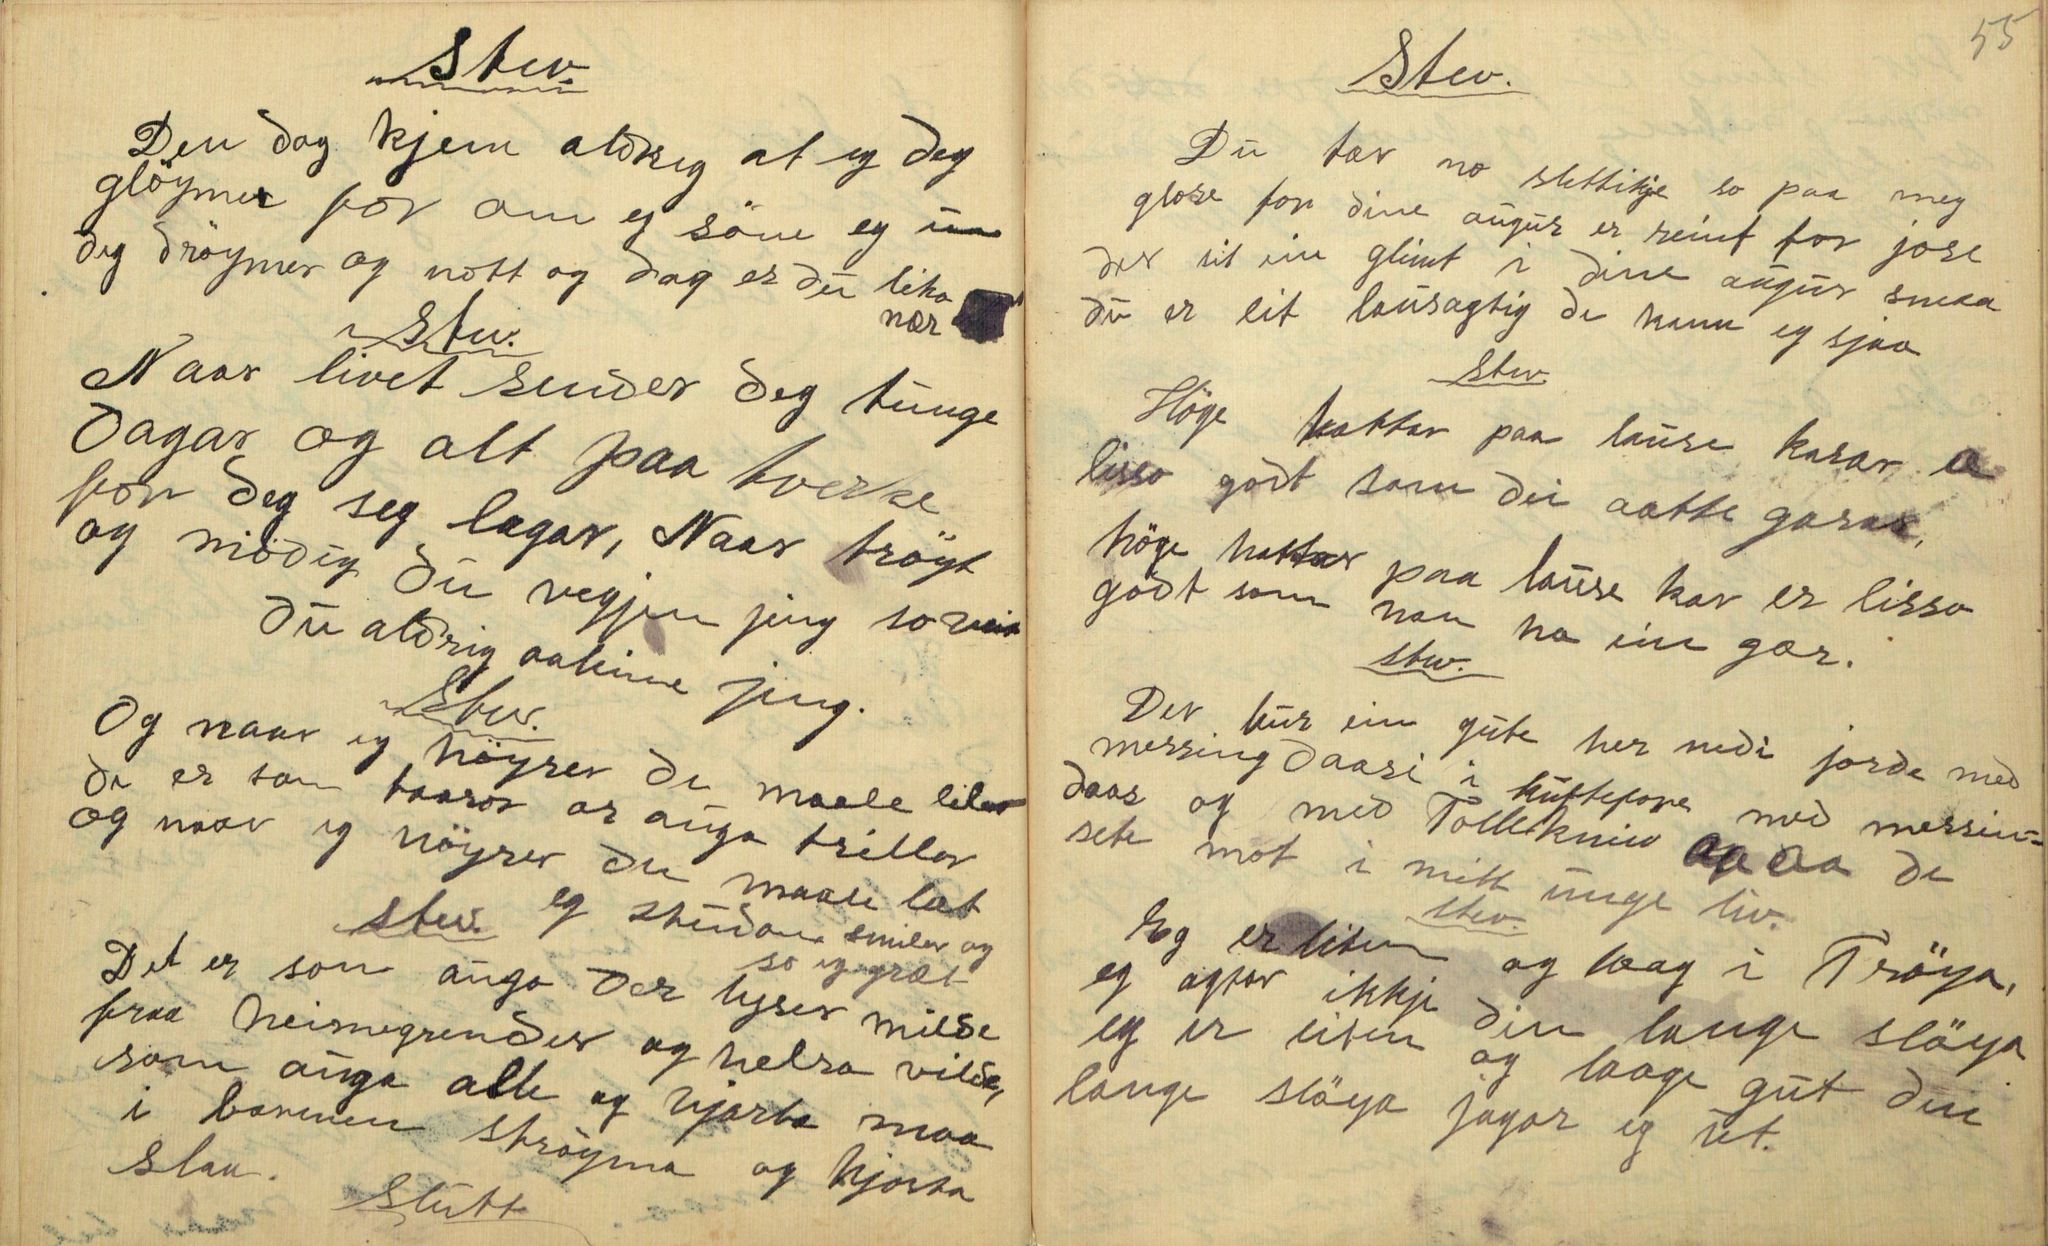 Stev.
Den dag kjem aldrig at eg deg
glöymer for om eg söne eg um
deg dröymer og nott og dag er du lika
nær
Stev.
Naar livet sender deg tunge
dagar og alt paa tverke
for deg seg lagar, Naar tröyt
og mödig du vegjen jeng so
du aldrig aaleine jeng.
Stev.
Og naar eg höyrer de maale liler
de er som taaror or auga triller
og naar eg höyrer de maale læt
eg stundom smiler og
so eg græt
Stev.
Det er som auga der lyser milde
fraa heimegrender og helsa vilde,
som auga alle og hjarta maa
i barmen ströyma og hjarta
slaa.
Slutt
55
Stev.
Du tar no slettikje so paa meg
glose for dine augur er reint for jose
der sit ein glimt i dine augur smaa
du er lit lausagtig de kann eg sjaa
Stev.
Höge hattar paa lause karar e
lisso godt som dei aatte garar,
höge hattar paa lause kar er lisso
godt som han ha ein gar.
Stev.
Der bur ein gute her nedi jorde med
messingdaasi i buttepope med messin=
daas og med Tollekniv aa de
sete mot i mitt unge liv.
Stev.
Eg er liten og laag i Tröya,
eg agtar ikkje din lange slöya
eg er liten og laage gut din
lange slöya jagar eg ut.